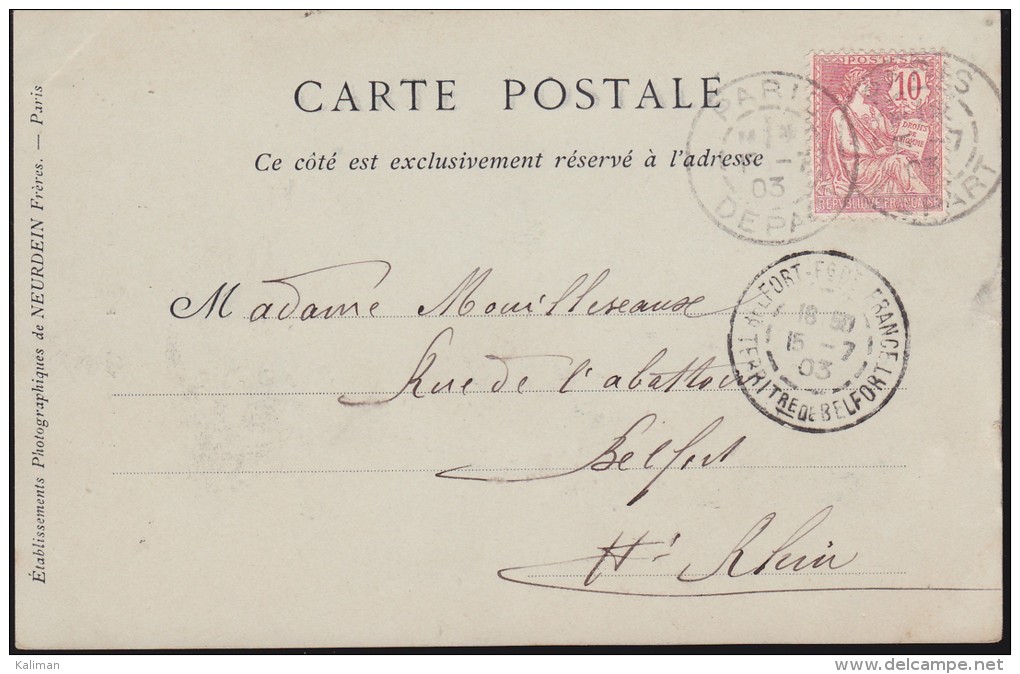 CARTE POSTALE
Ce côté est exclusivement réservé à l'adresse
POSTES
10
DROITS
DE
L'HOMME
REPUBLIQUE FRANÇAISE
PARIS
03
DEPART
03
Madame Mouilleseaux
Rue de l'abattoir
Belfort
Ht Rhin
BELFORT-FORGE-FRANCE
18 30
15 - 7
03
TERRITRE DE BELFORT
Établissements Photographiques de NEURDEIN Frères. — Paris
Kaliman
www.delcampe.net